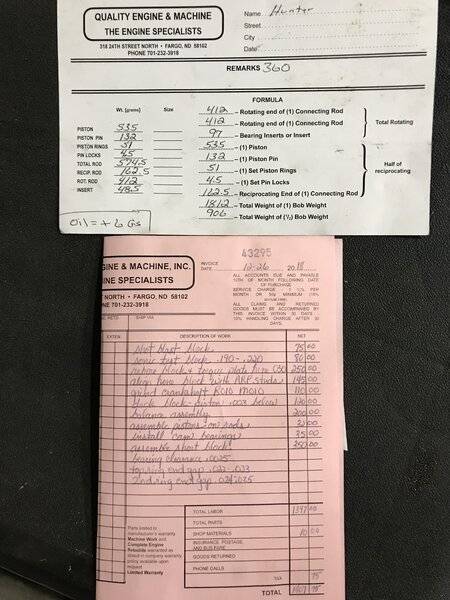 QUALITY ENGINE & MACHINE
THE ENGINE SPECIALISTS
318 24TH STREET NORTH • FARGO, ND 58102
PHONE 701-232-3918
Name Hunter
Street
City
Date
REMARKS 360
Wt. (grams) Size
PISTON 535
PISTON PIN 132
PISTON RINGS 51
PIN LOCKS 4.5
TOTAL ROD 574.5
RECIP. ROD 162.5
ROT. ROD 412
INSERT 48.5
Oil = + 6 Gs
FORMULA
412 – Rotating end of (1) Connecting Rod
412 – Rotating end of (1) Connecting Rod
97 – Bearing Inserts or Insert
Total Rotating
535 – (1) Piston
132 – (1) Piston Pin
51 – (1) Set Piston Rings
4.5 – (1) Set Pin Locks
162.5 – Reciprocating End of (1) Connecting Rod
Half of
reciprocating
1812 – Total Weight of (1) Bob Weight
906 – Total Weight of (½) Bob Weight
GINE & MACHINE, INC.
INE SPECIALISTS
NORTH • FARGO, ND 58102
NE 701-232-3918
43295
INVOICE
DATE 12-26 2018
ALL ACCOUNTS DUE AND PAYABLE
10TH OF MONTH FOLLOWING DATE
OF PURCHASE
ALL CLAIMS AND RETURNED
GOODS MUST BE ACCOMPANIED BY
THIS INVOICE WITHIN 30 DAYS
10% HANDLING CHARGE AFTER 30
DAYS.
SHIP VIA
EXTEN DESCRIPTION OF WORK NET
block 75 00
sonic test block .190-.220 80 00
rebore block & torque plate hone 250 00
align hone block with ARP studs 195 00
grind crankshaft R010 M010 110 00
deck block - pistons .003 below 120 00
balance assembly 200 00
assemble pistons on rods
install cam bearings 35 00
assemble short block 250 00
bearing clearance .0025
top ring end gap .022-.023
2nd ring end gap
Parts limited to
manufacturer's warranty
Machine Work and
Complete Engine
Rebuilds warranted as
stated in company warranty
policy available upon
request
Limited Warranty
TOTAL LABOR 1397 00
TOTAL PARTS
SHOP MATERIALS 10 00
INSURANCE, POSTAGE
AND BUS FARE
GOODS RETURNED
PHONE CALLS
TAX 75
TOTAL 1407 75